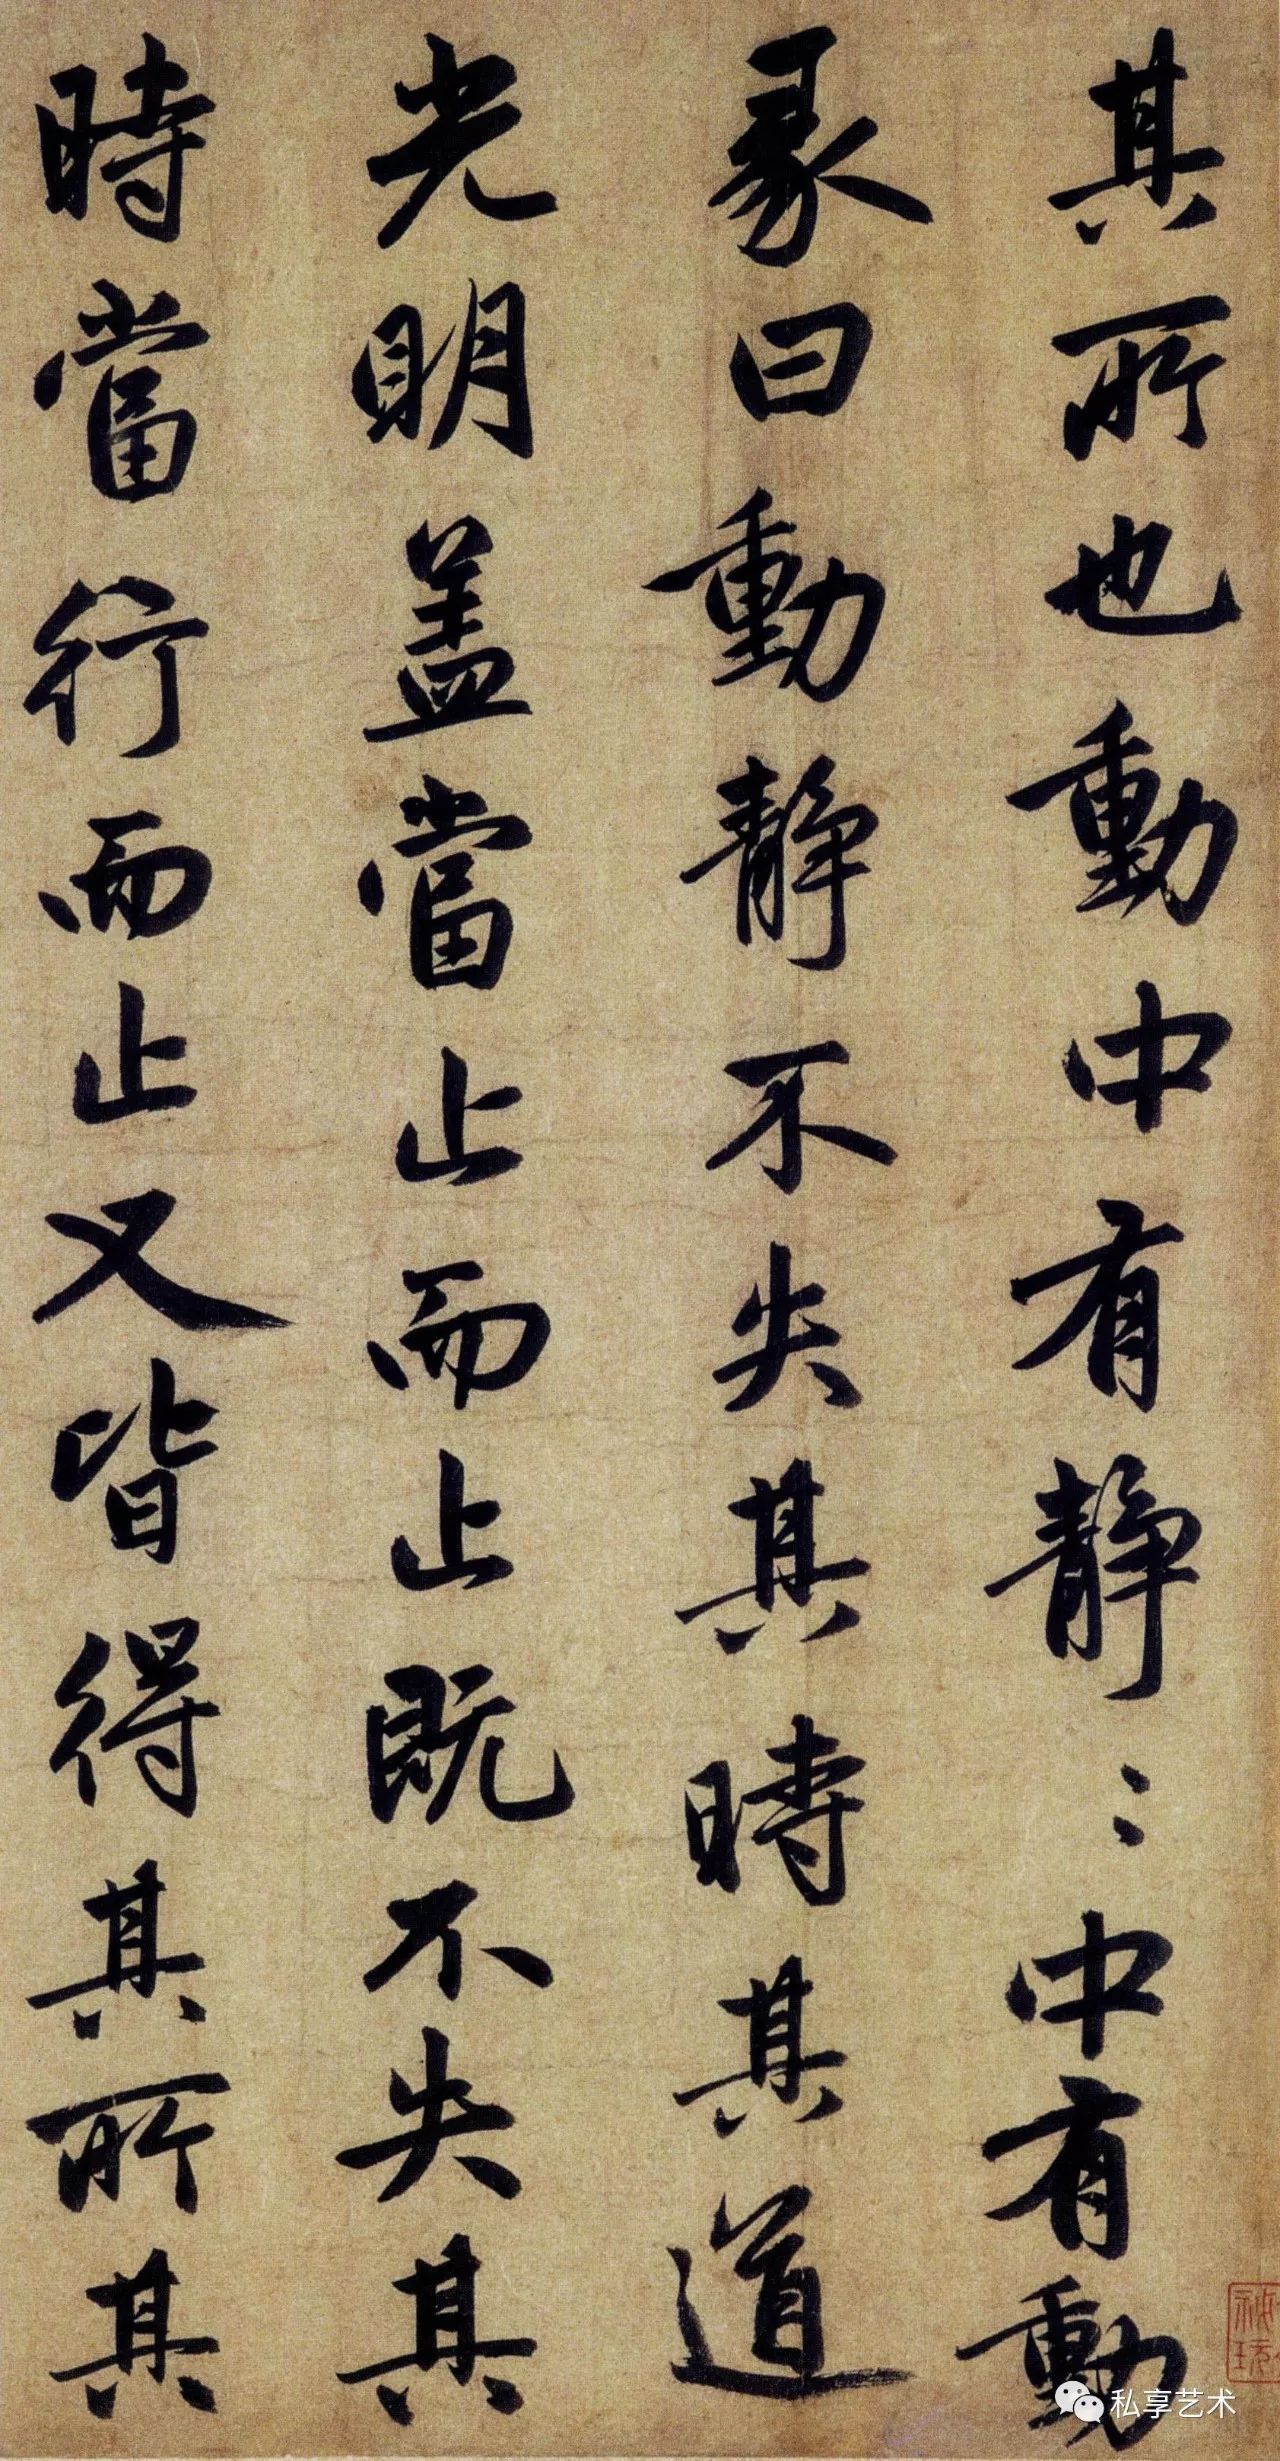 其所也動中有靜〻中有動
彖曰動靜不失其時其道
光明盖當止而止既不失其
時當行而止又皆得其所其
私享艺术